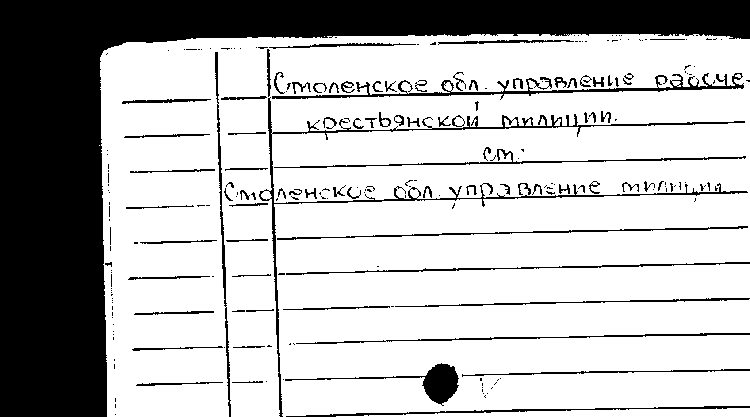 Смоленское обл. управление рабоче-
крестьянской милиции.
см:
Смоленское обл. управление милиции